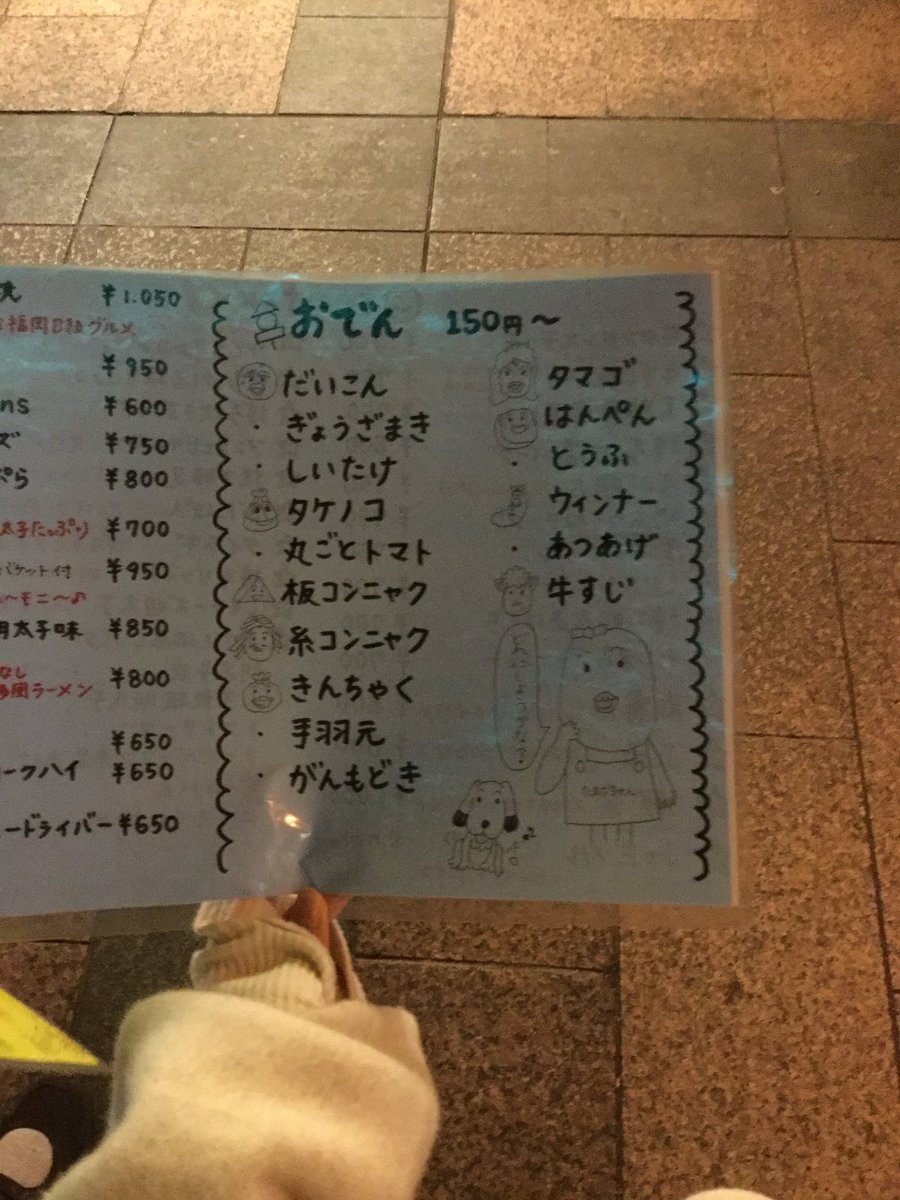 ¥1.050
福岡B級グルメ
¥950
ns ¥600
ズ ¥750
ぷら ¥800
太子たっぷり ¥700
バケット付 ¥950
〜モニ〜♪
明太子味 ¥850
なし
岡ラーメン ¥800
¥650
ークハイ ¥650
ードライバー ¥650
おでん 150円〜
だいこん
・ぎょうざまき
・しいたけ
タケノコ
・丸ごとトマト
板コンニャク
糸コンニャク
きんちゃく
・手羽元
・がんもどき
タマゴ
はんぺん
・とうふ
ウィンナー
・あつあげ
牛すじ